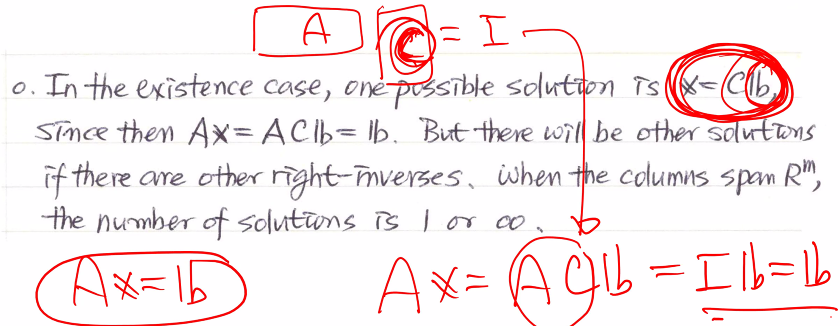 A C = I
o. In the existence case, one possible solution is x = Cb,
since then Ax = ACb = b. But there will be other solutions
if there are other right-inverses. When the columns span R^m,
the number of solutions is 1 or ∞.
Ax = b
Ax = ACb = Ib = b